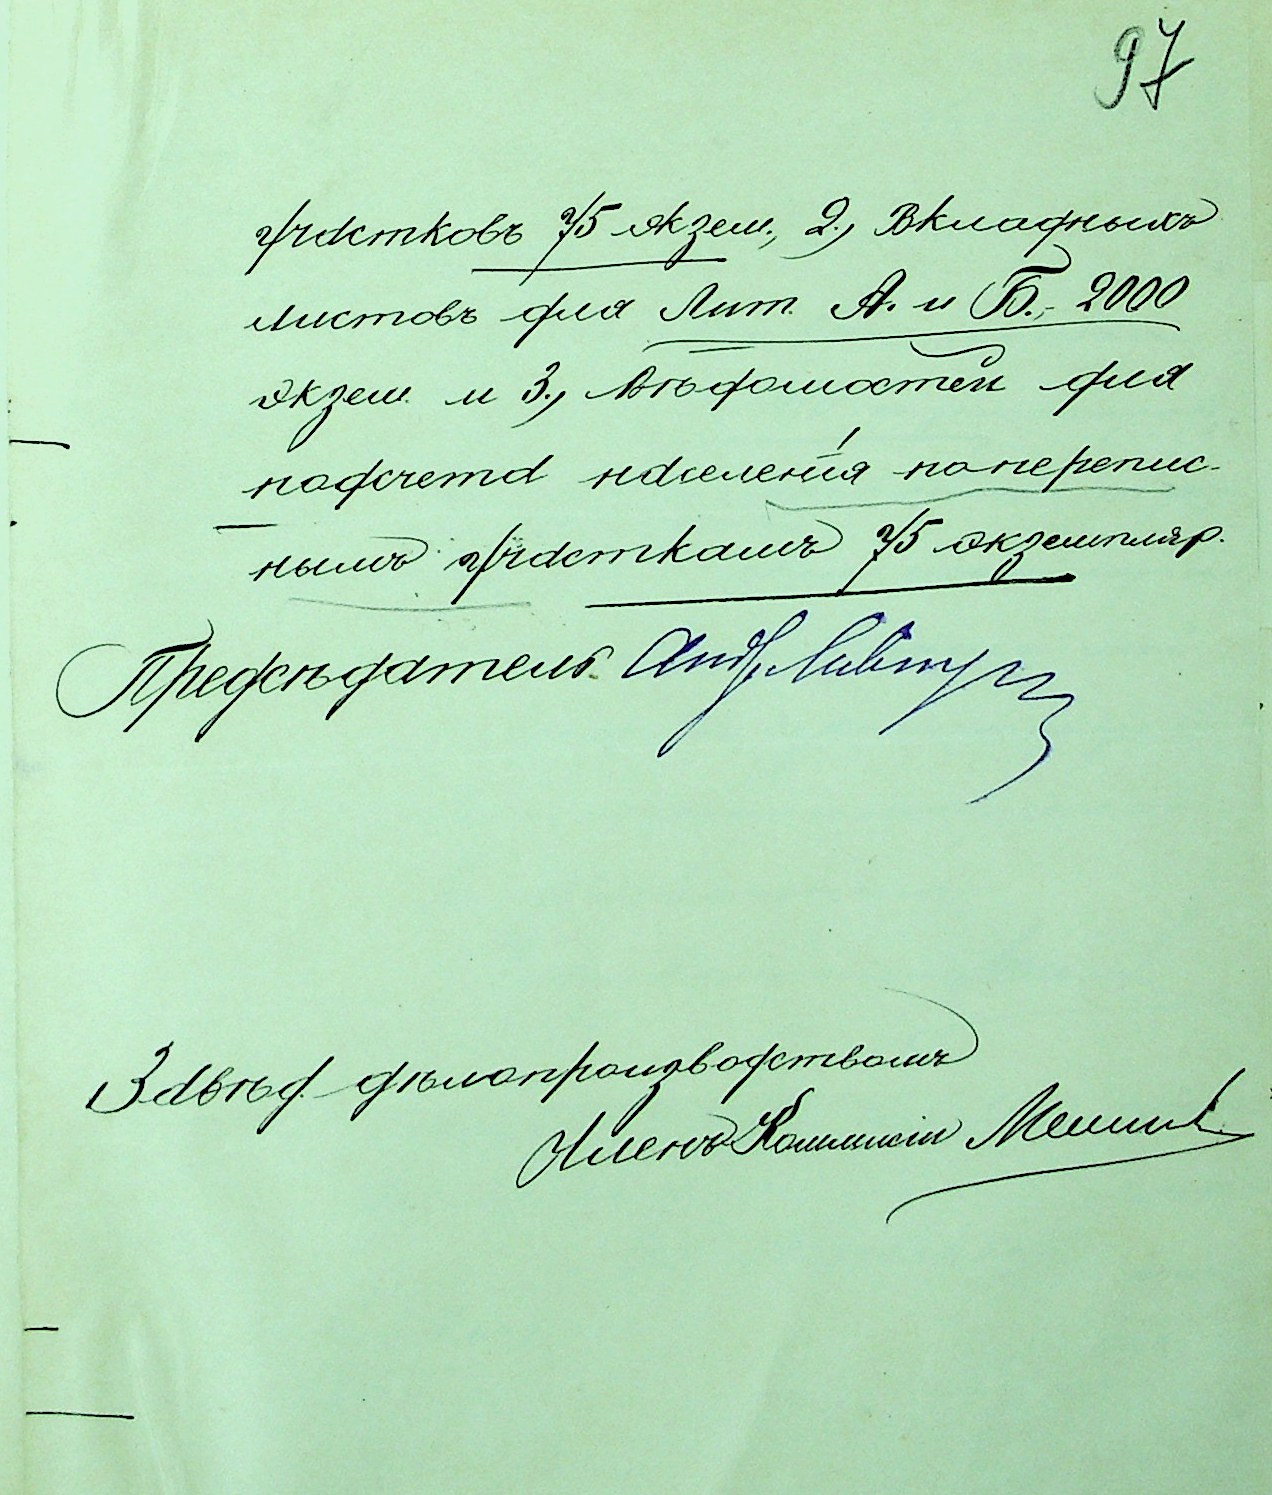 97
участковъ 75 экзем., 2., Вкладныхъ
листовъ для Лит. А. и Б., 2000
экзем. и 3., Вѣдомостей для
подсчета населенія по перепис-
нымъ участкамъ 75 экземпляр.
Предсѣдатель
Завѣд. дѣлопроизводствомъ
Членъ Коммисіи